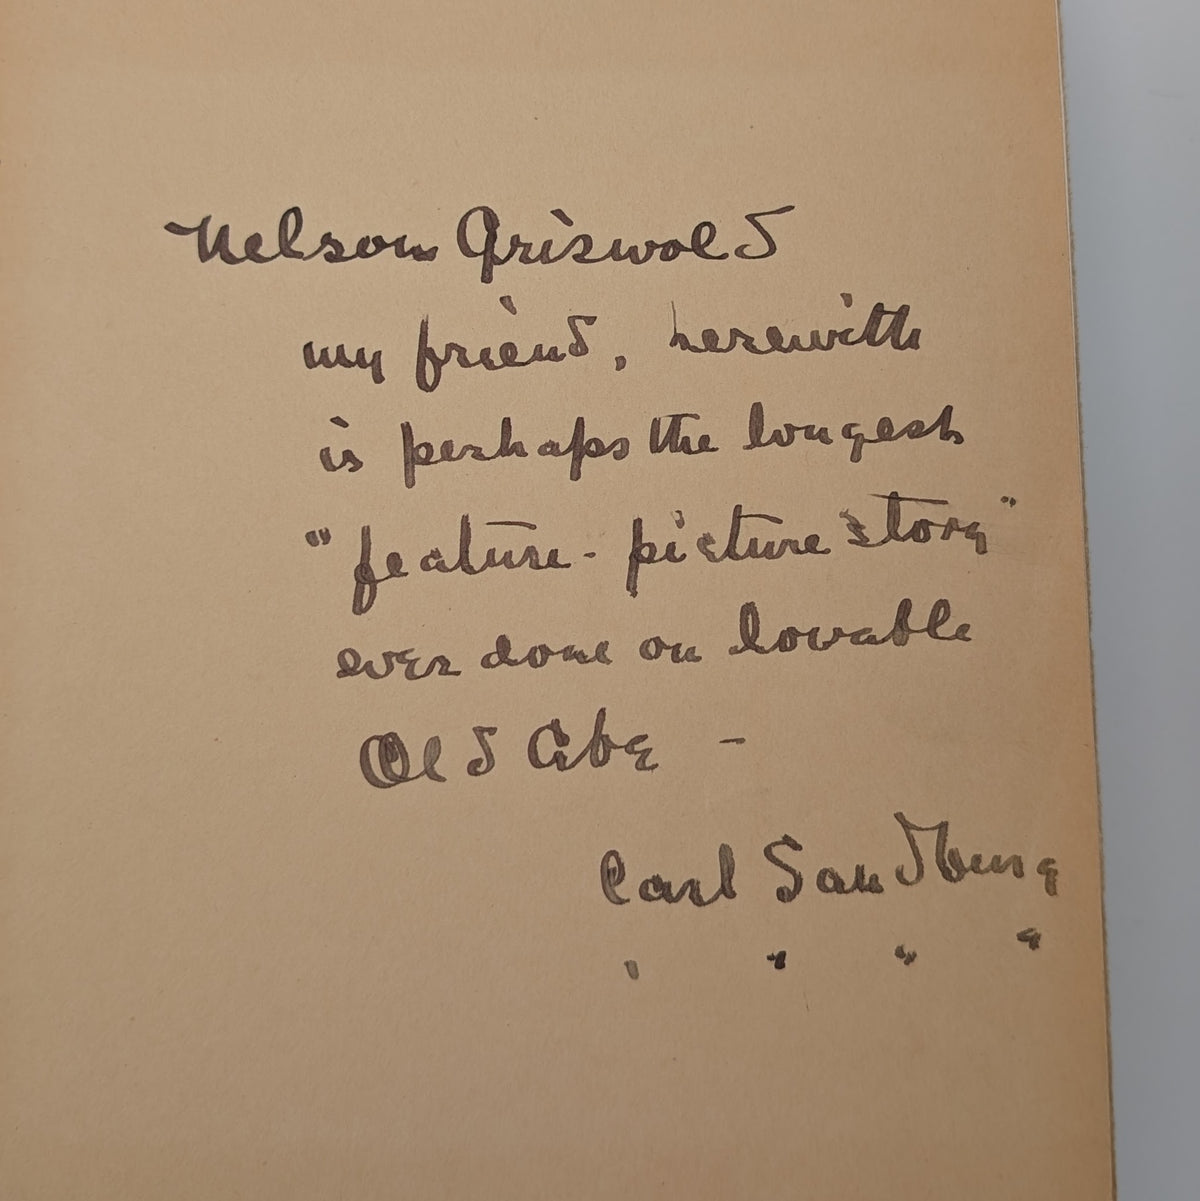 Nelson Griswold
my friend, herewith
is perhaps the longest
"feature-picture story"
ever done on lovable
Old Abe -
Carl Sandburg